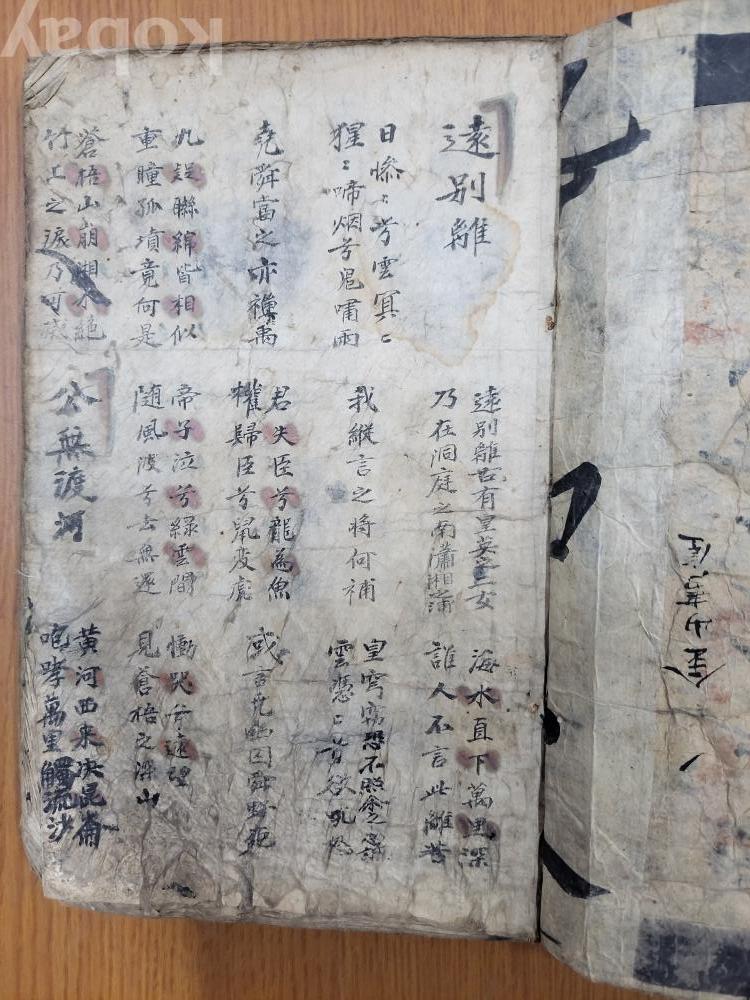 遠別離
遠別離古有皇英之二女
乃在洞庭之南瀟湘之浦
海水直下萬里深
誰人不言此離苦
日慘〻兮雲冥〻
猩〻啼烟兮鬼嘯雨
我縱言之將何補
皇穹竊恐不照余之忠誠
雲憑〻兮欲吼怒
堯舜當之亦禪禹
君失臣兮龍為魚
權歸臣兮鼠变虎
或言堯幽囚舜野死
九疑聯綿皆相似
重瞳孤墳竟何是
帝子泣兮綠雲間
隨風波兮去無還
慟哭兮遠望
見蒼梧之深山
蒼梧山崩湘水絕
竹上之淚乃可滅
公無渡河
黃河西來決昆崙
咆哮萬里觸流沙
Kobay